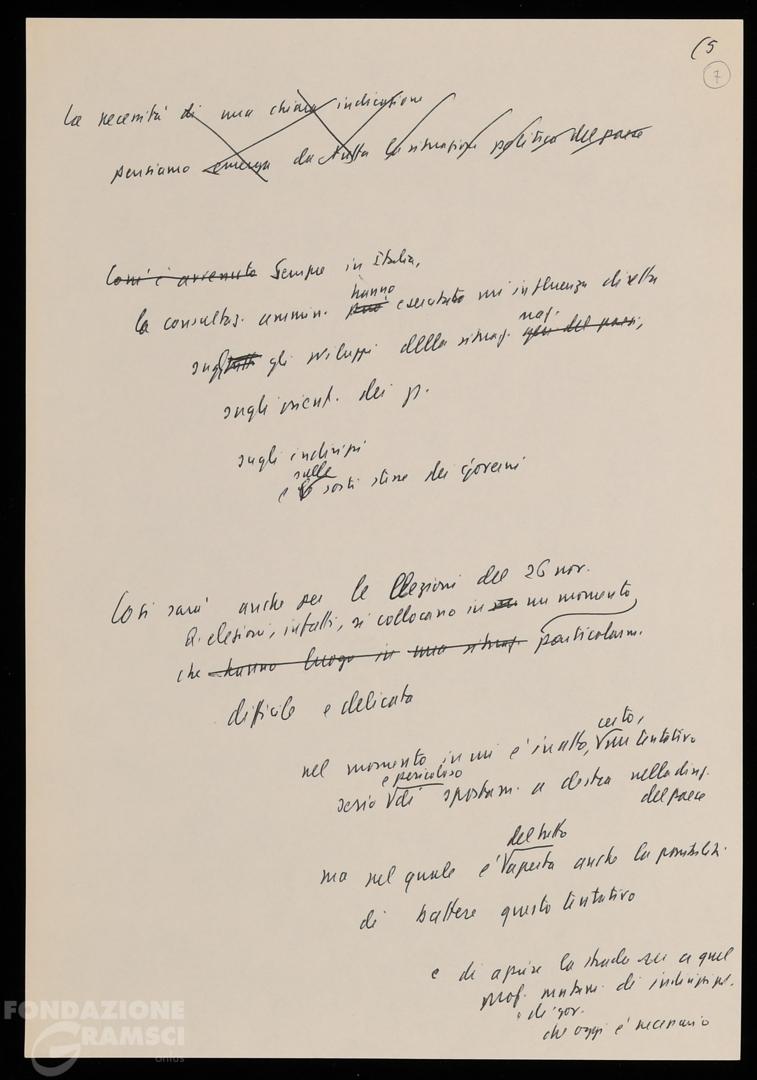 (5
7
La necessità di una chiara indicazione
pensiamo emerga da tutta la situazione politica del paese
Com'è avvenuto sempre in Italia,
hanno
la consultaz. ammin. può esercitato un influenza diretta
naz.
sugli gli sviluppi della situaz.
sugli orient. dei p.
sugli indirizzi
sulle
e le sorti stesse dei governi
Così sarà anche per le Elezioni del 26 nov.
Q. elezioni, infatti, si collocano in un momento
che hanno luogo in una situaz. particolarm.
difficile e delicato
certo,
nel momento in cui è in atto, un tentativo
e pericoloso
serio di spostam. a destra nella direz.
del paese
del tutto
ma nel quale è aperta anche la possibilità
di battere questo tentativo
e di aprire la strada a quel
prof. mutam. di indirizzi
di gov.
che oggi è necessario
FONDAZIONE
GRAMSCI
onlus